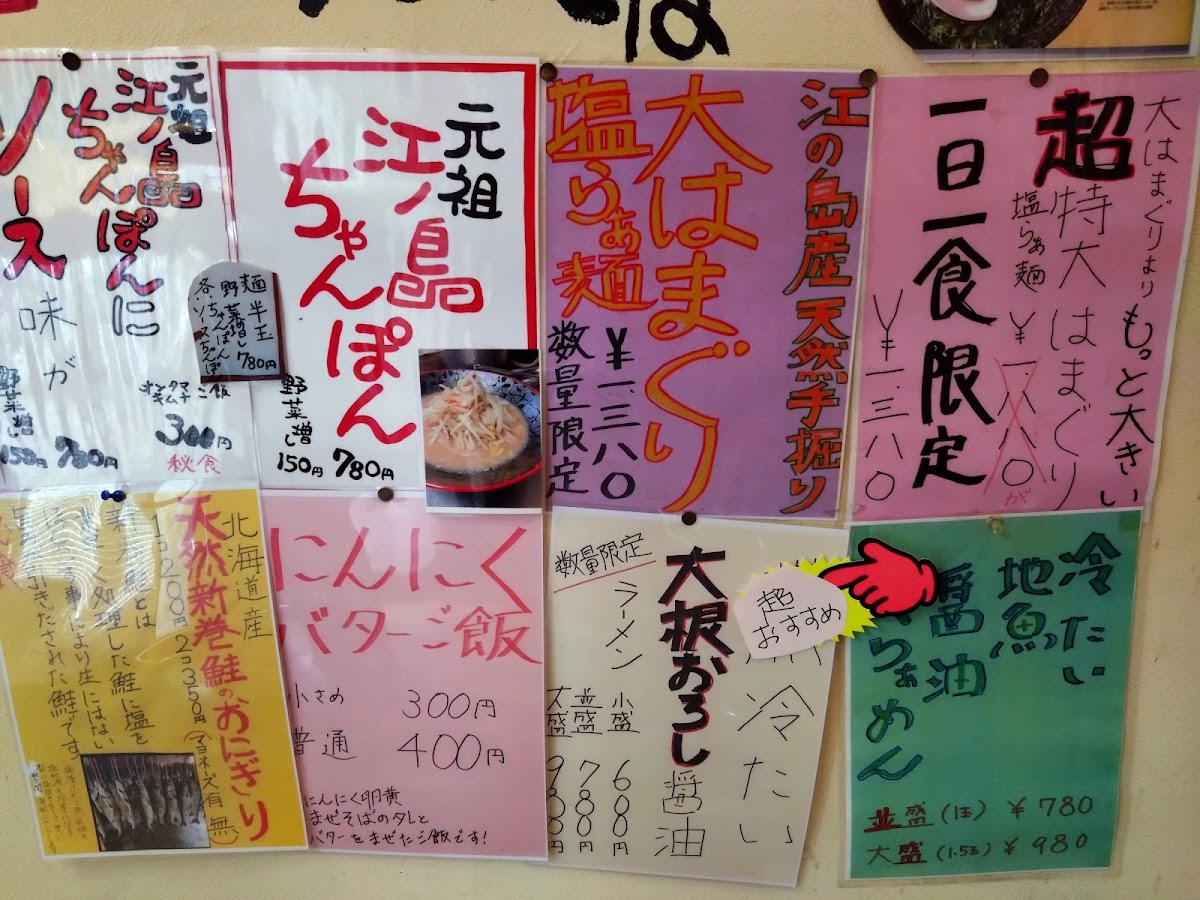 超
大はまぐりより
もっと大きい
特大はまぐり
塩らぁ麺
￥一、八八〇
が
一日一食限定
￥一、三八〇
江の島産天然手掘り
大はまぐり
塩らぁ麺
￥一、三八〇
数量限定
元祖
江ノ島
ちゃんぽん
野菜増し
150円
780円
元祖
江ノ島
ちゃんぽんに
ソース
味が
麺半玉
野菜増し
各ちゃんぽん
ソースちゃんぽ
780円
ご飯
300円
秋食
野菜増し
150円
780円
冷たい
地魚
醤油
らぁめん
並盛(1玉) ￥780
大盛(1.5玉) ￥980
超
おすすめ
冷たい
大根おろし
醤油
ラーメン
数量限定
小盛 680円
並盛 780円
大盛 980円
にんにく
バターご飯
小さめ 300円
普通 400円
にんにく卵黄
まぜそばのタレと
バターをまぜたご飯です!
北海道産
天然新巻鮭のおにぎり
1コ200円 2コ350円(マヨネーズ有 無)
新巻鮭とは
処理した鮭に塩を
事により生にはない
引きだされた鮭です